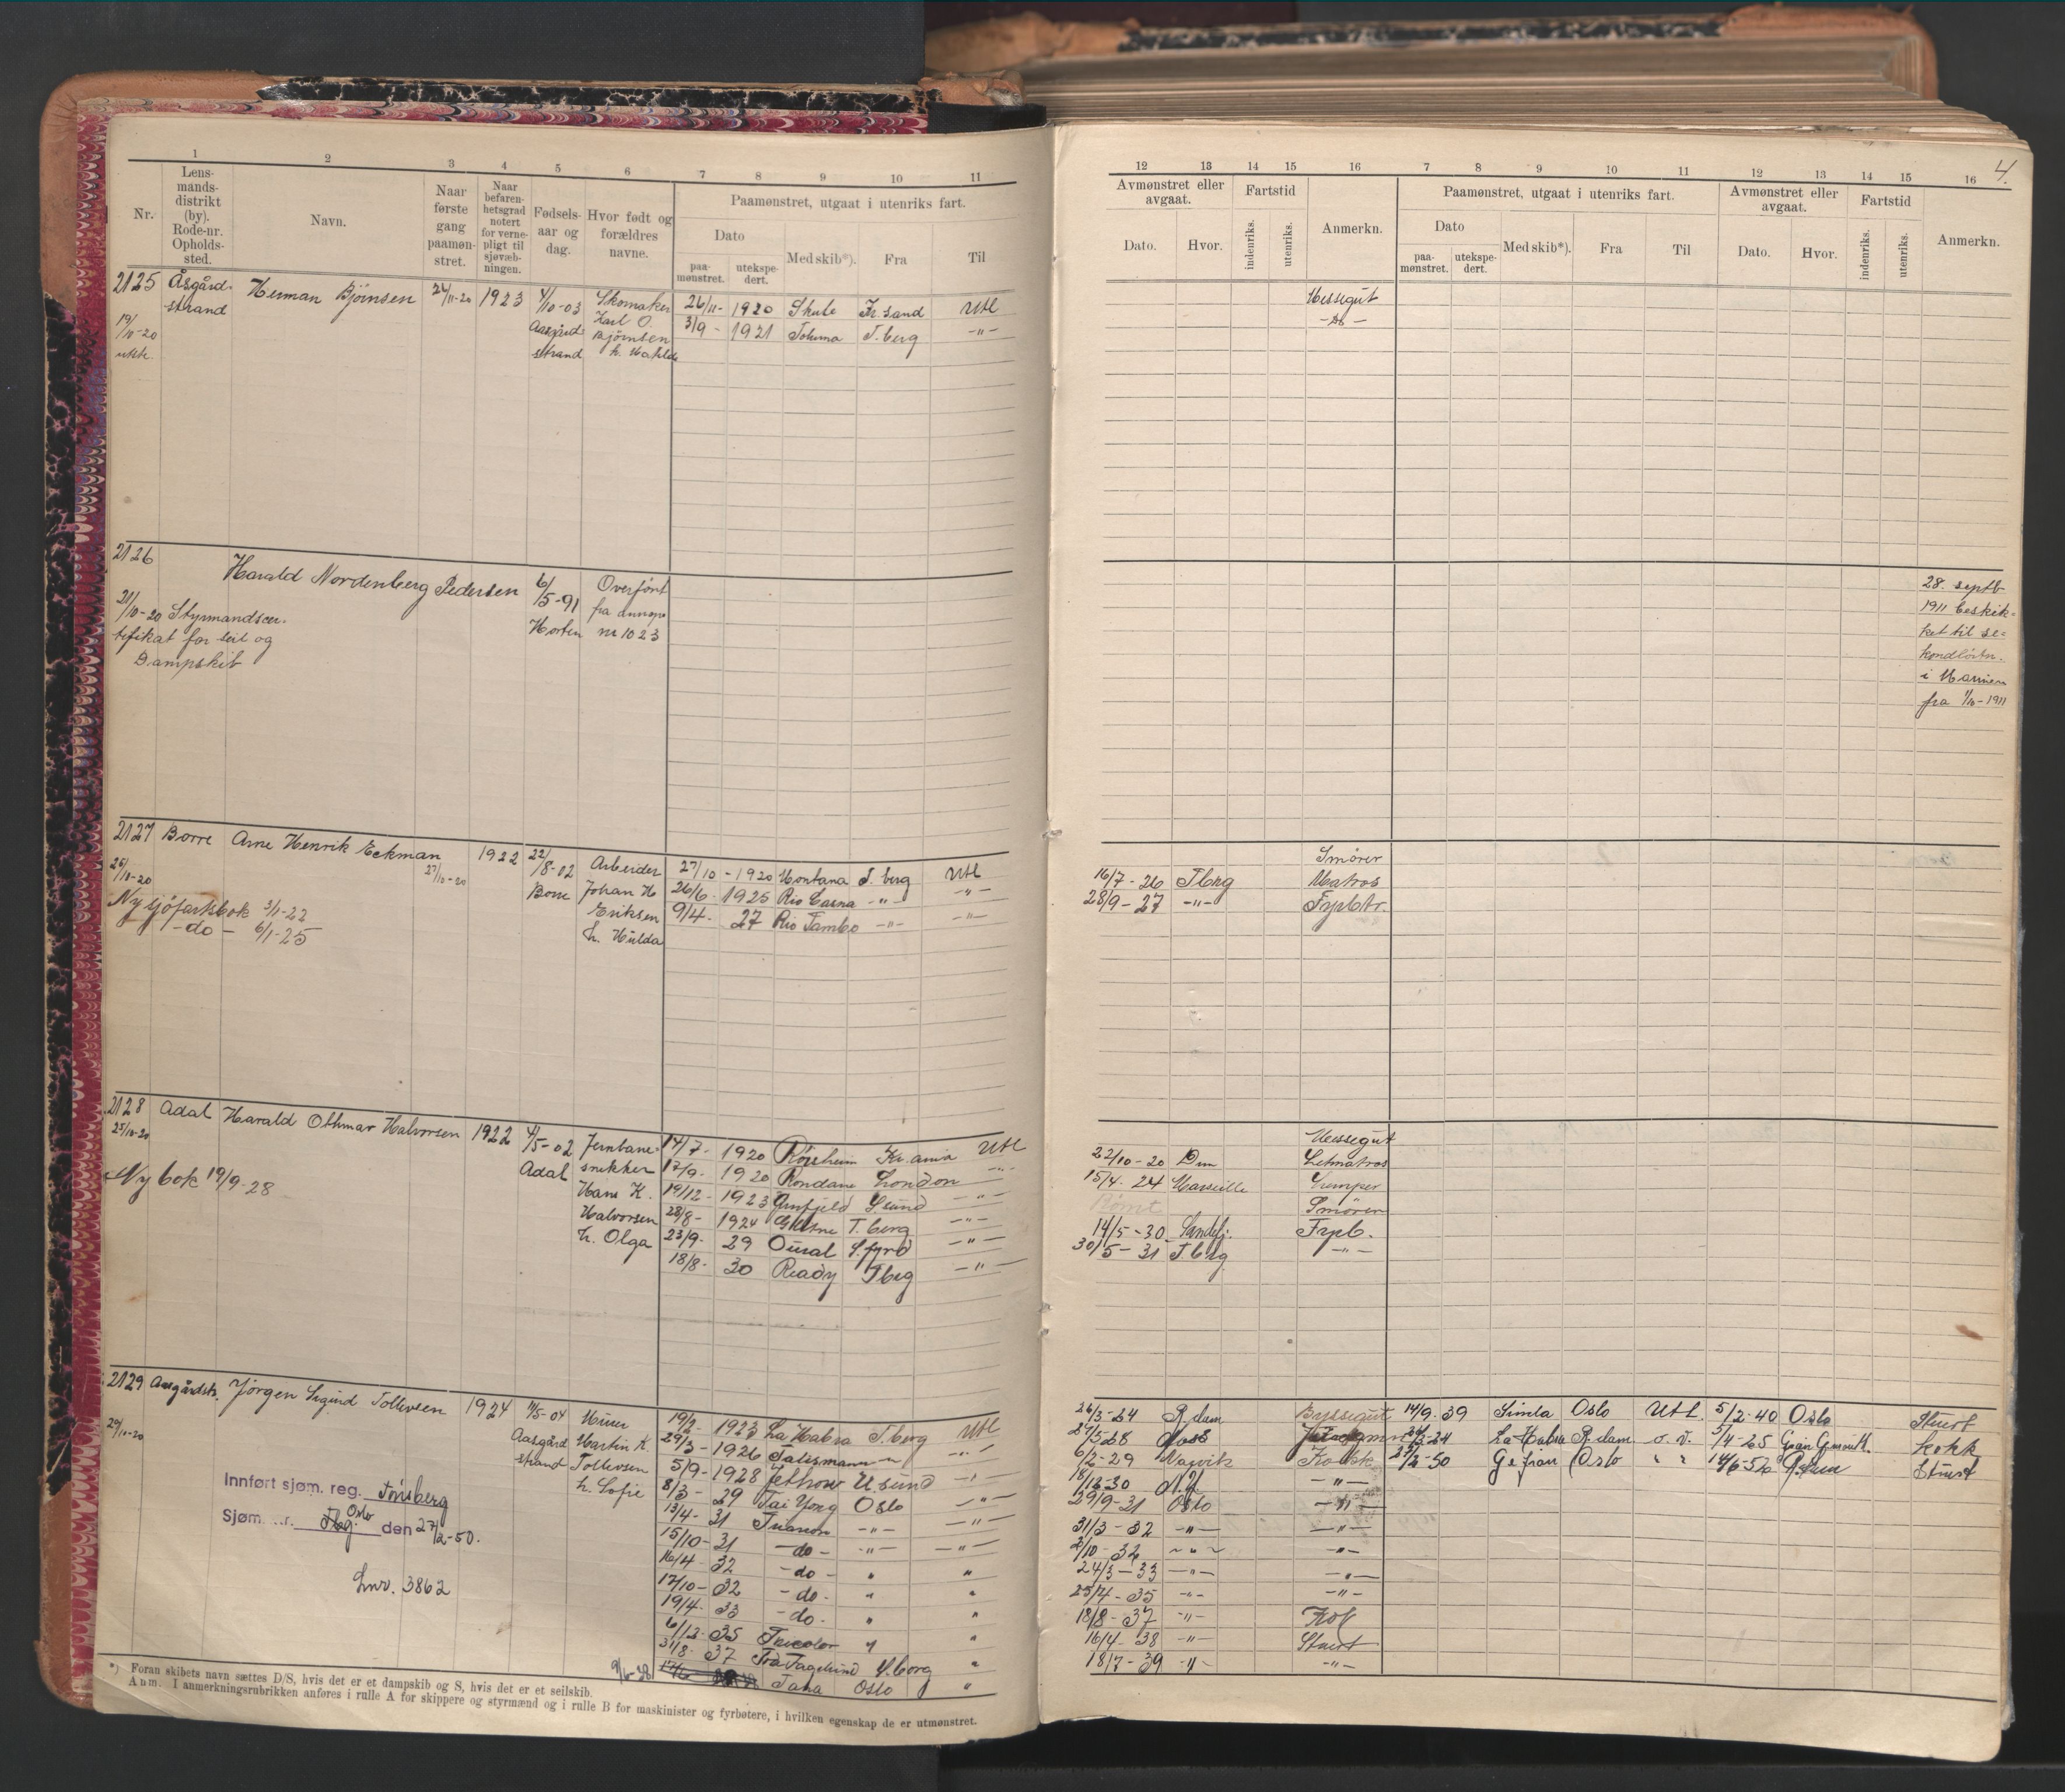 1 2 3 4 5 6 7 8 9 10 11
Nr.
Lens-
mands-
distrikt
(by).
Rode-nr.
Opholds-
sted.
Navn.
Naar
første
gang
paamøn-
stret.
Naar
befaren-
hetsgrad
notert
for verne-
pligt til
sjøvæb-
ningen.
Fødsels-
aar og
dag.
Hvor født og
forældres
navne.
Paamønstret, utgaat i utenriks fart.
Dato
paa-
mønstret.
utekspe-
dert.
Med skib*).
Fra
Til
2125 Åsgård-
strand
19/10-20
Herman Bjørnsen
1923
4/10-03
Aasgård
strand
Skomaker
Karl O.
Bjørnsen
h. Mathilde
26/11- 1920 Skule Kr.sand Utl
3/9 - 1921 T.berg -"-
2126
Harald Nordenberg Pedersen
6/5-91
Horten
Overført
fra
nr 1023
21/10-20 Styrmandscer-
tifikat for seil og
Dampskib
2127 Borre Arne Henrik Eckman
26/10-20
27/10-20
1922
22/8-02
Borre
Arbeider
Johan H
Eriksen
h. Hulda
Ny sjøfartsbok 3/1-22
-do- 6/1-25
27/10 - 1920 Montana T.berg Utl
26/6- 1925 Rio Casna -"- -"-
9/4- 27 Rio Tambo -"- -"-
2128 Adal Harald Othmar Halvorsen 1922
25/10-20
4/5-02
Adal
Jernbane-
snekker
Hans K.
Halvorsen
h. Olga
Ny bok 19/9-28
14/7- 1920 Røisheim Kr.ania Utl
17/9- 1920 Rondane London -"-
19/12- 1923 -"-
28/8- 1924 T.berg -"-
23/9- 29 Oural S.fjord -"-
18/8- 30 Ready Tbrg -"-
2129 Aasgårdstr. Jørgen Sigurd Tollevsen 1924
29/10-20
11/5-04
Aasgård
strand
Murer
Martin K.
Tollevsen
h. Sofie
Innført sjøm. reg. Tønsberg
Oslo
Sjøm. nr. Tbg. den 27/2-50.
Lnr. 3862
19/2- 1923 La Habra T.berg Utl
29/3- 1926 Talismann -"- -"-
5/9- 1928 -"-
8/3- 29 Tai Yong Oslo -"-
13/4- 31 Triton -"- -"-
15/10- 31 -do- -"- -"-
16/4- 32 -do- " "
17/10- 32 -do- " "
19/4- 33 -do- " "
6/12- 35 Tricolor " "
31/8- 37 "
9/6-38 Taha Oslo "
*) Foran skibets navn sættes D/S, hvis det er et dampskib og S, hvis det er et seilskib.
Anm. I anmerkningsrubrikken anføres i rulle A for skippere og styrmænd og i rulle B for maskinister og fyrbøtere, i hvilken egenskap de er utmønstret.
4.
12 13 14 15 16 7 8 9 10 11 12 13 14 15 16
Avmønstret eller
avgaat.
Dato.
Hvor.
Fartstid
indenriks.
utenriks.
Anmerkn.
Paamønstret, utgaat i utenriks fart.
Dato
paa-
mønstret.
utekspe-
dert.
Med skib*).
Fra
Til
Avmønstret eller
avgaat.
Dato.
Hvor.
Fartstid
indenriks.
utenriks.
Anmerkn.
Messegut
-do-
28. septb
1911 beskik-
ket til se-
kondløitn.
i Marinen
fra 1/10-1911
Smører
16/7-26 Tbrg Matros
28/9-27 -"- Fyrbtr.
Messegut
22/10-20 Letmatros
15/4-24 Marseille Lemper
Rømt Smører
14/5-30 Sandefj. Fyrb.
30/5-31 Tbrg -"-
26/3-24 R.dam Byssegut 14/9-39 Simla Oslo Utl. 5/2-40 Oslo Stuert
La Habra R.dam Kokk
6/2-29 Kokk 27/2-50 Gefion Oslo " " Stuert
18/12-30 N.Y. -"-
29/9-31 Oslo -"-
31/3-32 -"- -"-
2/10-32 -"- -"-
24/3-33 -"- -"-
25/4-35 -"- -"-
18/8-37 -"- Kok
16/4-38 -"- Stuert
18/7-39 -"- -"-